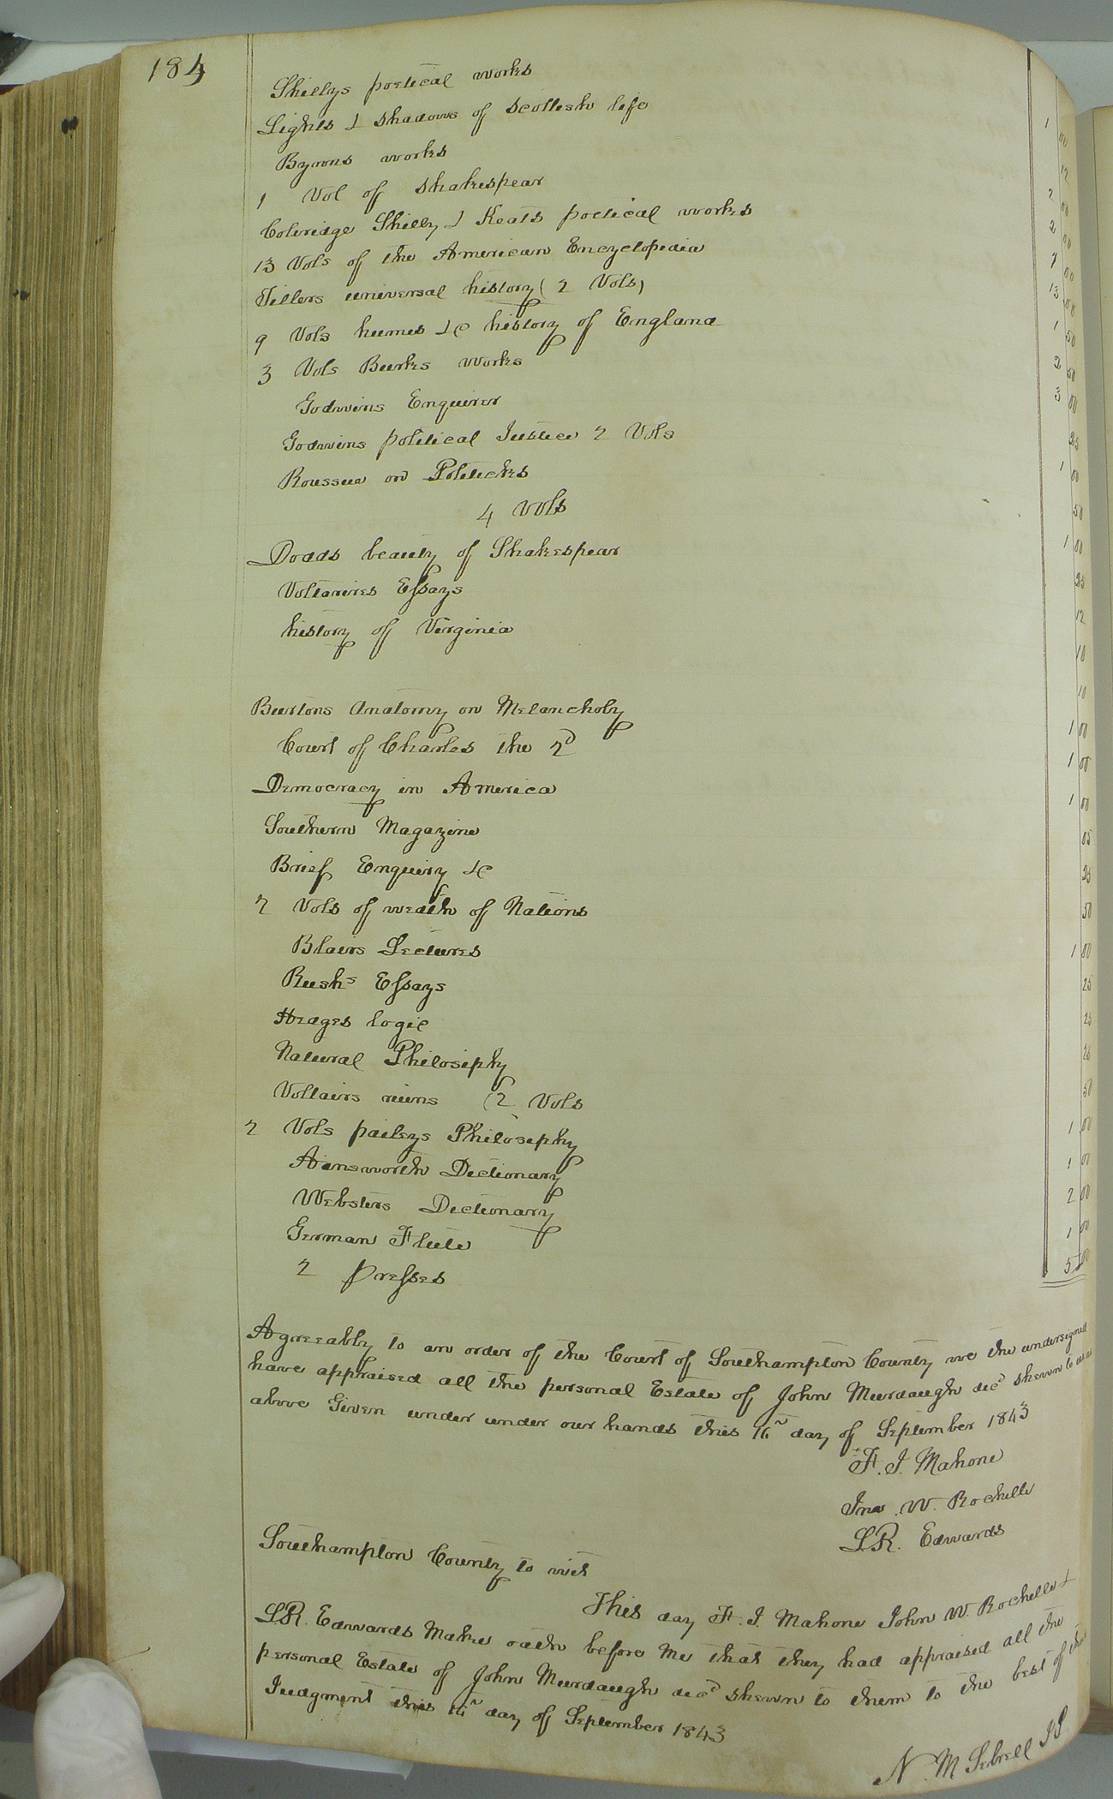 184
Shellys poetical works
Lights & Shadows of Scottish life
Byrons works
1 Vol of Shakespear
Coleridge Shelly & Keats poetical works
13 Vols of the American Encyclopedia
Tillers universal history (2 Vols)
9 Vols humes &c history of England
3 Vols Burks works
Godwins Enquirer
Godwins political Justice 2 Vols
Roussua on Politicks
4 Vols
Dodds beauty of Shakespear
Voltaires Essays
history of Virginia
Burtons Anatomy on Melancholy
Court of Charles the 2d
Democracy in America
Southern Magazine
Brief Enquiry &c
2 Vols of wealth of Nations
Blairs Lectures
Rushs Essays
Hedges logic
Natural Philosiphy
Voltairs ruins (2 Vols
2 Vols paileys Philosiphy
Ainsworth Dictionary
Websters Dictionary
German Flute
2 presses
Agreeably to an order of the Court of Southampton County we the undersigned
have appraised all the personal Estate of John Murdaugh decd shewn to us as
above Given under under our hands this day of September 1843
F. J. Mahone
Jno. W. Rochelle
L.R. Edwards
Southampton County to wit
This day F. J. Mahone John W. Rochelle &
L.R. Edwards Make oath before Me that they had appraised all the
personal Estate of John Murdaugh decd shewn to them to the best of their
Judgment this day of September 1843
N. M Sebrell JP